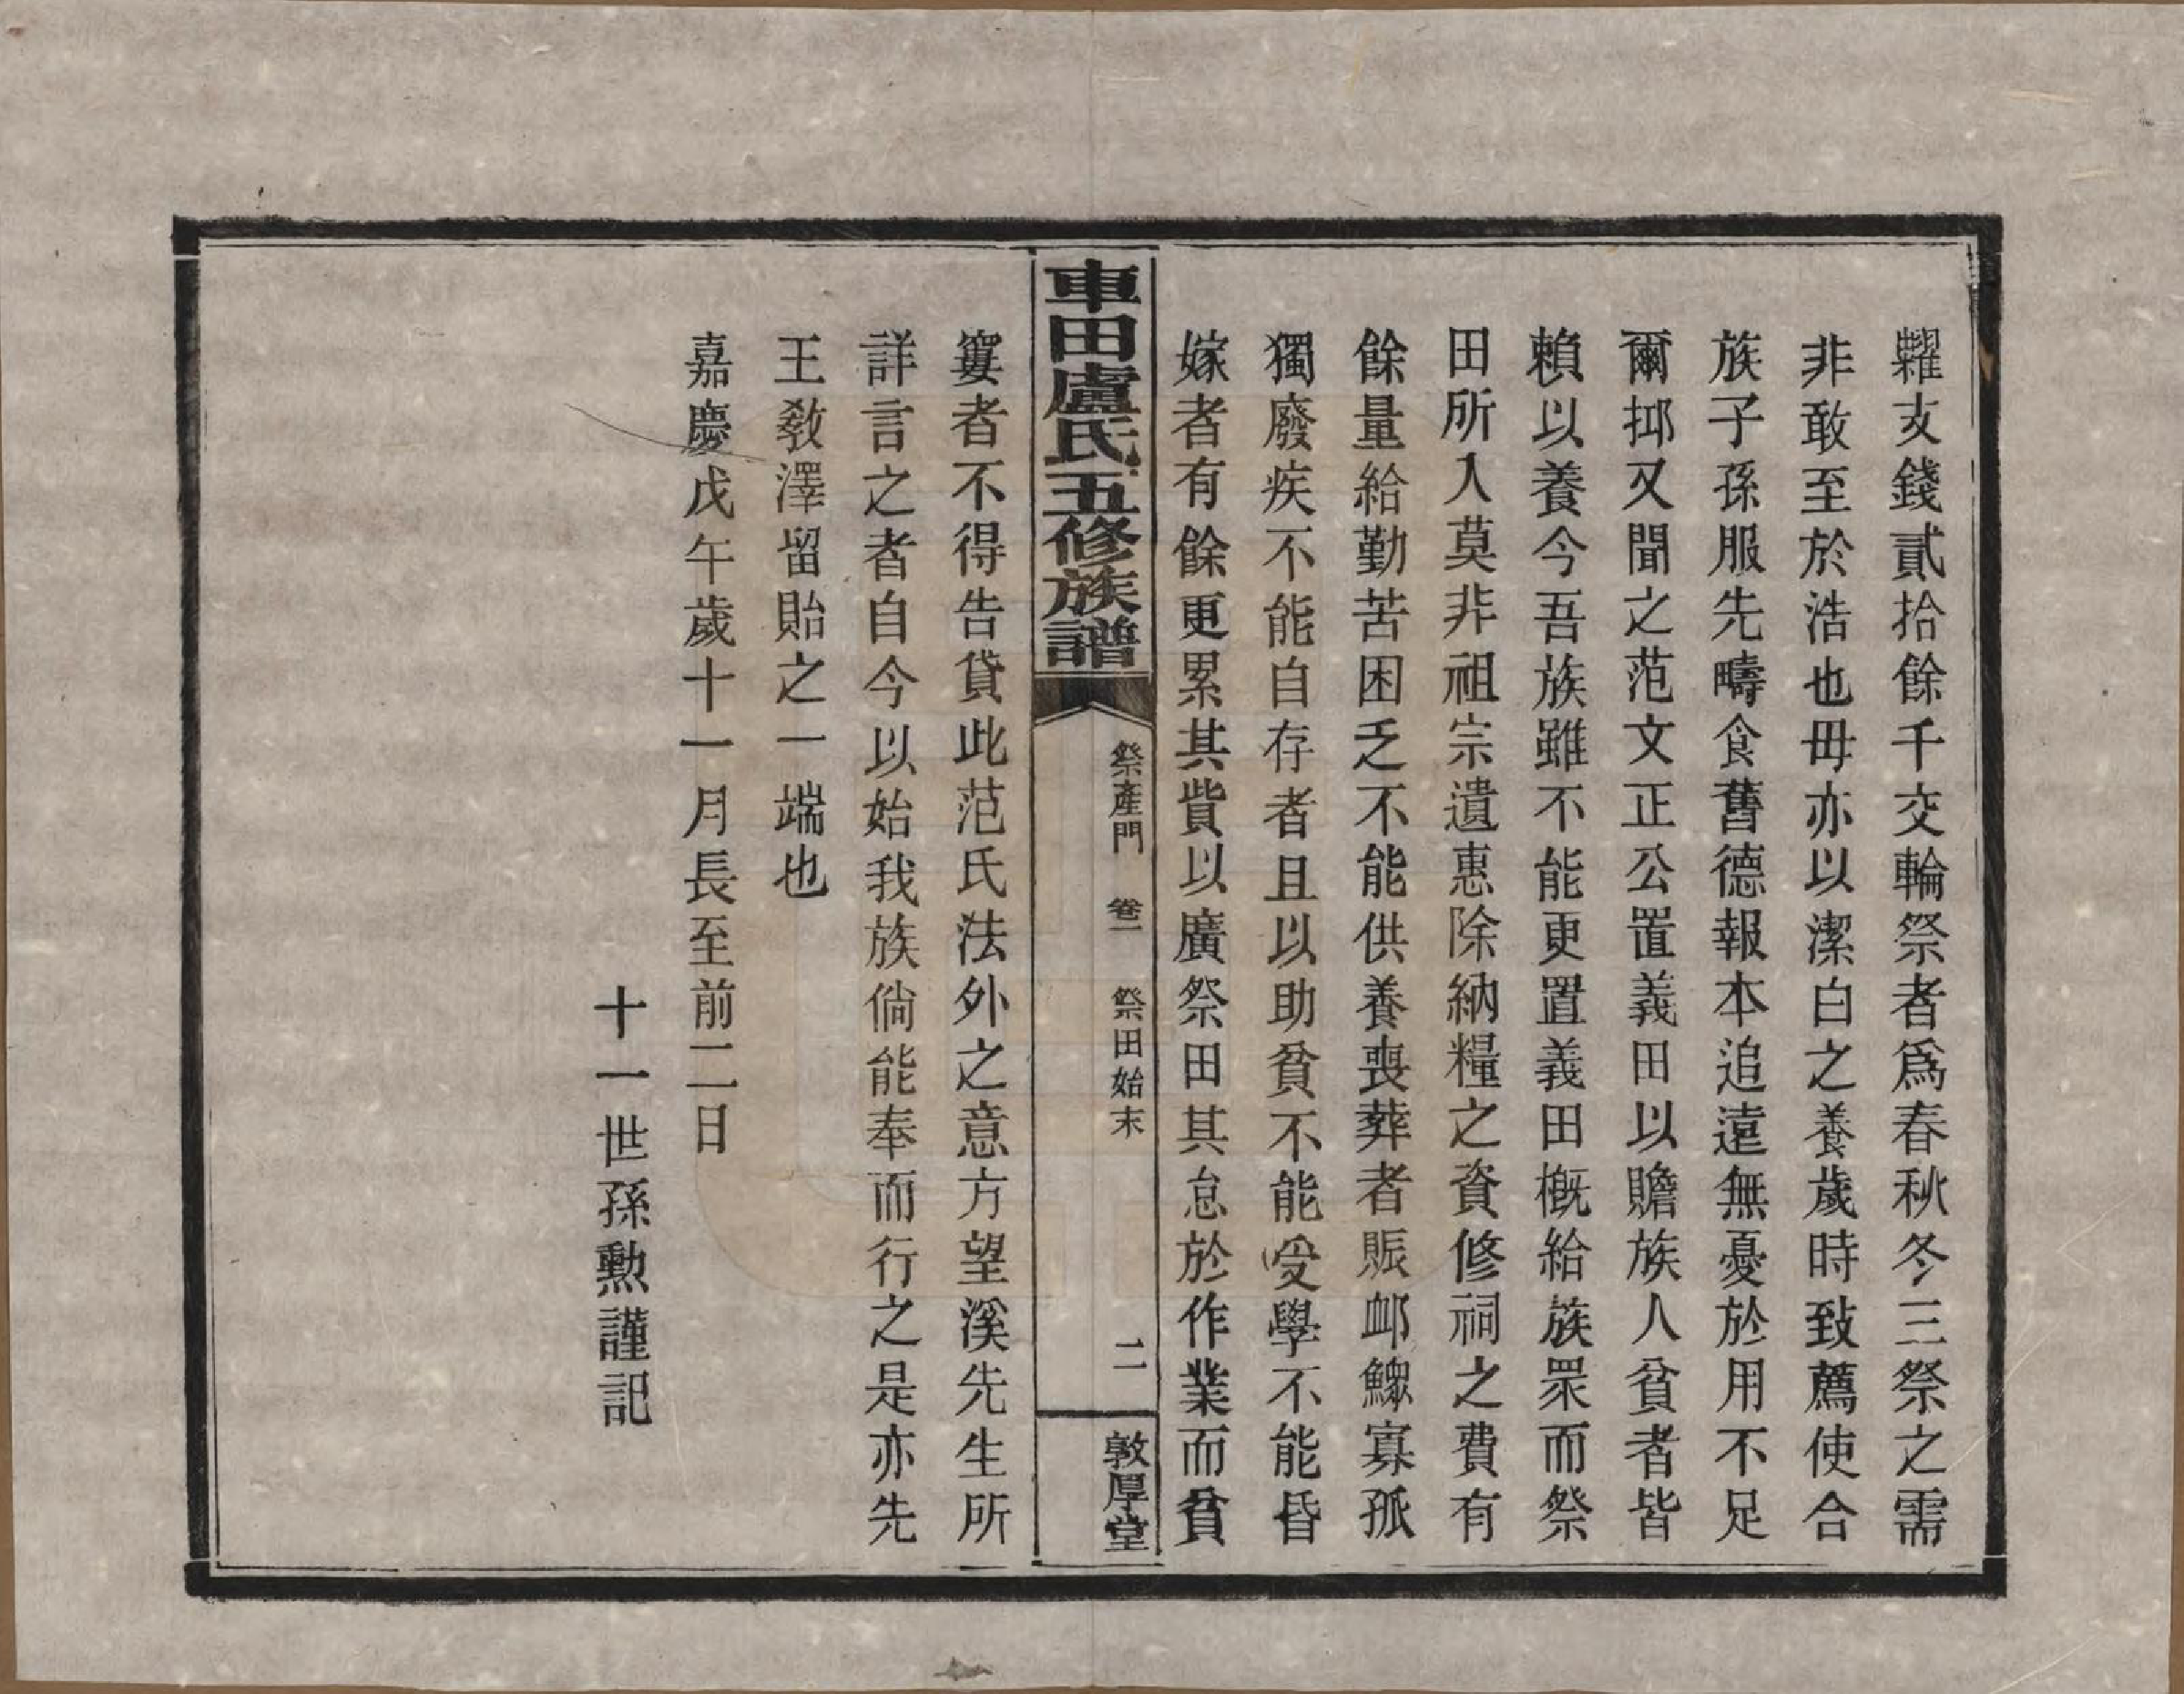 糶支錢貳拾餘千交輪祭者爲春秋冬三祭之需
非敢至於浩也毋亦以潔白之養歲時致薦使合
族子孫服先疇食舊德報本追遠無憂於用不足
爾抑又聞之范文正公置義田以贍族人貧者皆
賴以養今吾族雖不能更置義田槪給族眾而祭
田所入莫非祖宗遺惠除納糧之資修祠之費有
餘量給勤苦困乏不能供養喪葬者賑卹鰥寡孤
獨廢疾不能自存者且以助貧不能受學不能昏
嫁者有餘更累其貲以廣祭田其怠於作業而貧
車田盧氏五修族譜
祭產門 卷一 祭田始末
二
敦厚堂
窶者不得告貸此范氏法外之意方望溪先生所
詳言之者自今以始我族倘能奉而行之是亦先
王敎澤留貽之一端也
嘉慶戊午歲十一月長至前二日
十一世孫勲謹記